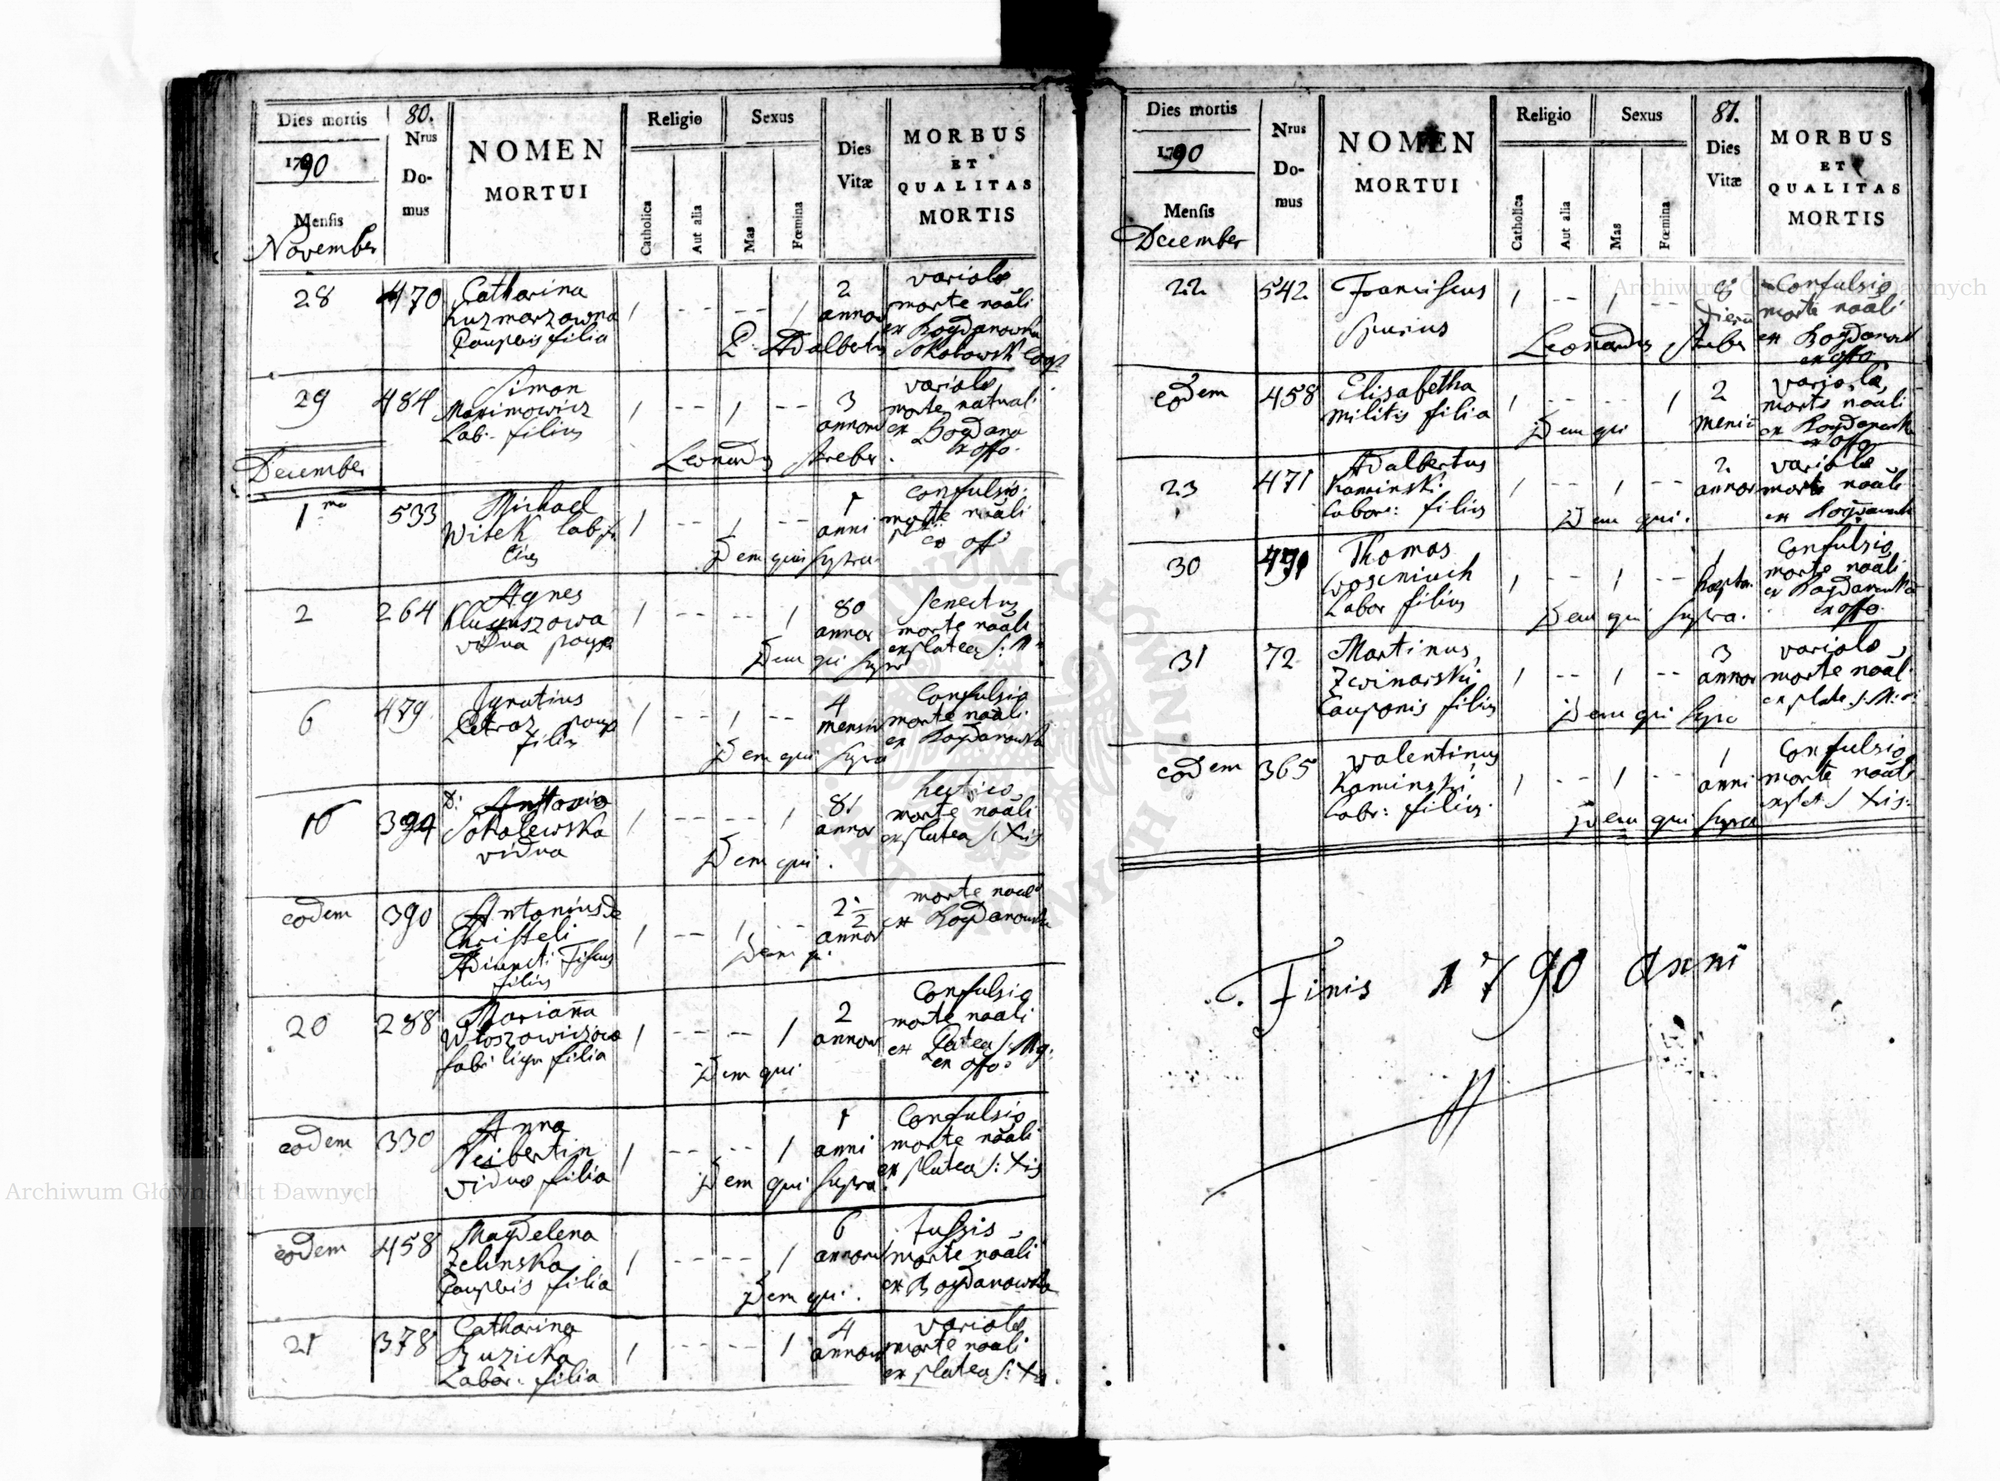 Dies mortis
1790
Mensis
November
80.
Nrus
Do-
mus
NOMEN
MORTUI
Religio
Catholica
Aut alia
Sexus
Mas
Fœmina
Dies
Vitæ
MORBUS
ET
QUALITAS
MORTIS
28 470 Catharina
Kuzmarzowna
Pauperis filia
1 -- -- 1
2
annor
variola
morte nãali
ex Bogdanowka
P. Adalbertus Sokolowski Coop
29 484 Simon
Maximowicz
Lab. filius
1 -- 1 --
3
annorū
variola
morte natural
ex Bogdano
ex offo.
Leonardus Streber
December
1ma 533 Michael
Witek lab fi
lius
1 -- 1 --
1
anni
Confulsio
morte nãali
ex off
Idem qui supra
2 264 Agnes
vidua paup
1 -- -- 1
80
annor
senectus
morte nãali
ex platea S: M
Idem qui supra
6 479 Ignatius
Pietraz paup
filius
1 -- 1 --
4
mensiu
Confulsio
morte nãali
ex Bogdanowka
Idem qui supra
16 394 D: Antonia
Sokolewska
vidua
1 -- -- 1
81
annor
hectica
morte nãali
ex platea S: Xis
Idem qui.
eodem 390 Antonius de
Christeli
Adiuncti Fiscus
filius
1 -- 1 --
2 1/2
annor
morte nãali
ex Bogdanowka
Idem q.
20 288 Marianna
Wloszowiczowa
fabri lign filia
1 -- -- 1
2
annor
Confulsio
morte nãali
ex Platea S: Mg.
ex offo:
Idem qui
eodem 330 Anna
Neibertin
viduæ filia
1 -- -- 1
1
anni
Confulsio
morte nãali
ex platea S: Xis
Idem qui supra.
eodem 458 Magdelena
Zelinska
Pauperis filia
1 -- -- 1
6
annorū
tussis
morte nãali
ex Bogdanowka
Idem qui.
21 378 Catharina
Ruzicka
Labor. filia
1 -- -- 1
4
annorū
variola
morte nãali
ex platea S: Xis.
Dies mortis
1790
Mensis
December
Nrus
Do-
mus
NOMEN
MORTUI
Religio
Catholica
Aut alia
Sexus
Mas
Fœmina
81.
Dies
Vitæ
MORBUS
ET
QUALITAS
MORTIS
22 542 Franciscus
spurius
1 -- 1 --
8
Dierū
Confulsio
morte nãali
ex Bogdanowk
ex offo
Leonardus Streber
eodem 458 Elisabetha
militis filia
1 -- -- 1
2
variola
morte nãali
ex Bogdanowka
ex offo
Idem qui
23 471 Adalbertus
Kaminski
Labor: filius
1 -- 1 --
2
annor
variola
morte nãali
ex Bogdanowk
Idem qui.
30 491 Thomas
Labor filius
1 -- 1 --
1
Confulsio
morte nãali
ex Bogdanowka
ex offo.
Idem qui supra.
31 72 Martinus
Zwinarski
Cauponis filius
1 -- 1 --
3
annor
variola
morte nãali
ex plate S: M:
Idem qui supr
eodem 365 Valentinus
Kaminski
Labr: filius
1 -- 1 --
1
anni
Confulsio
morte nãali
ex plat S Xis:
Idem qui supra
Finis 1790 Anni
Archiwum Główne Akt Dawnych
Archiwum Główne Akt Dawnych
ARCHIWUM GŁÓWNE AKT DAWNYCH